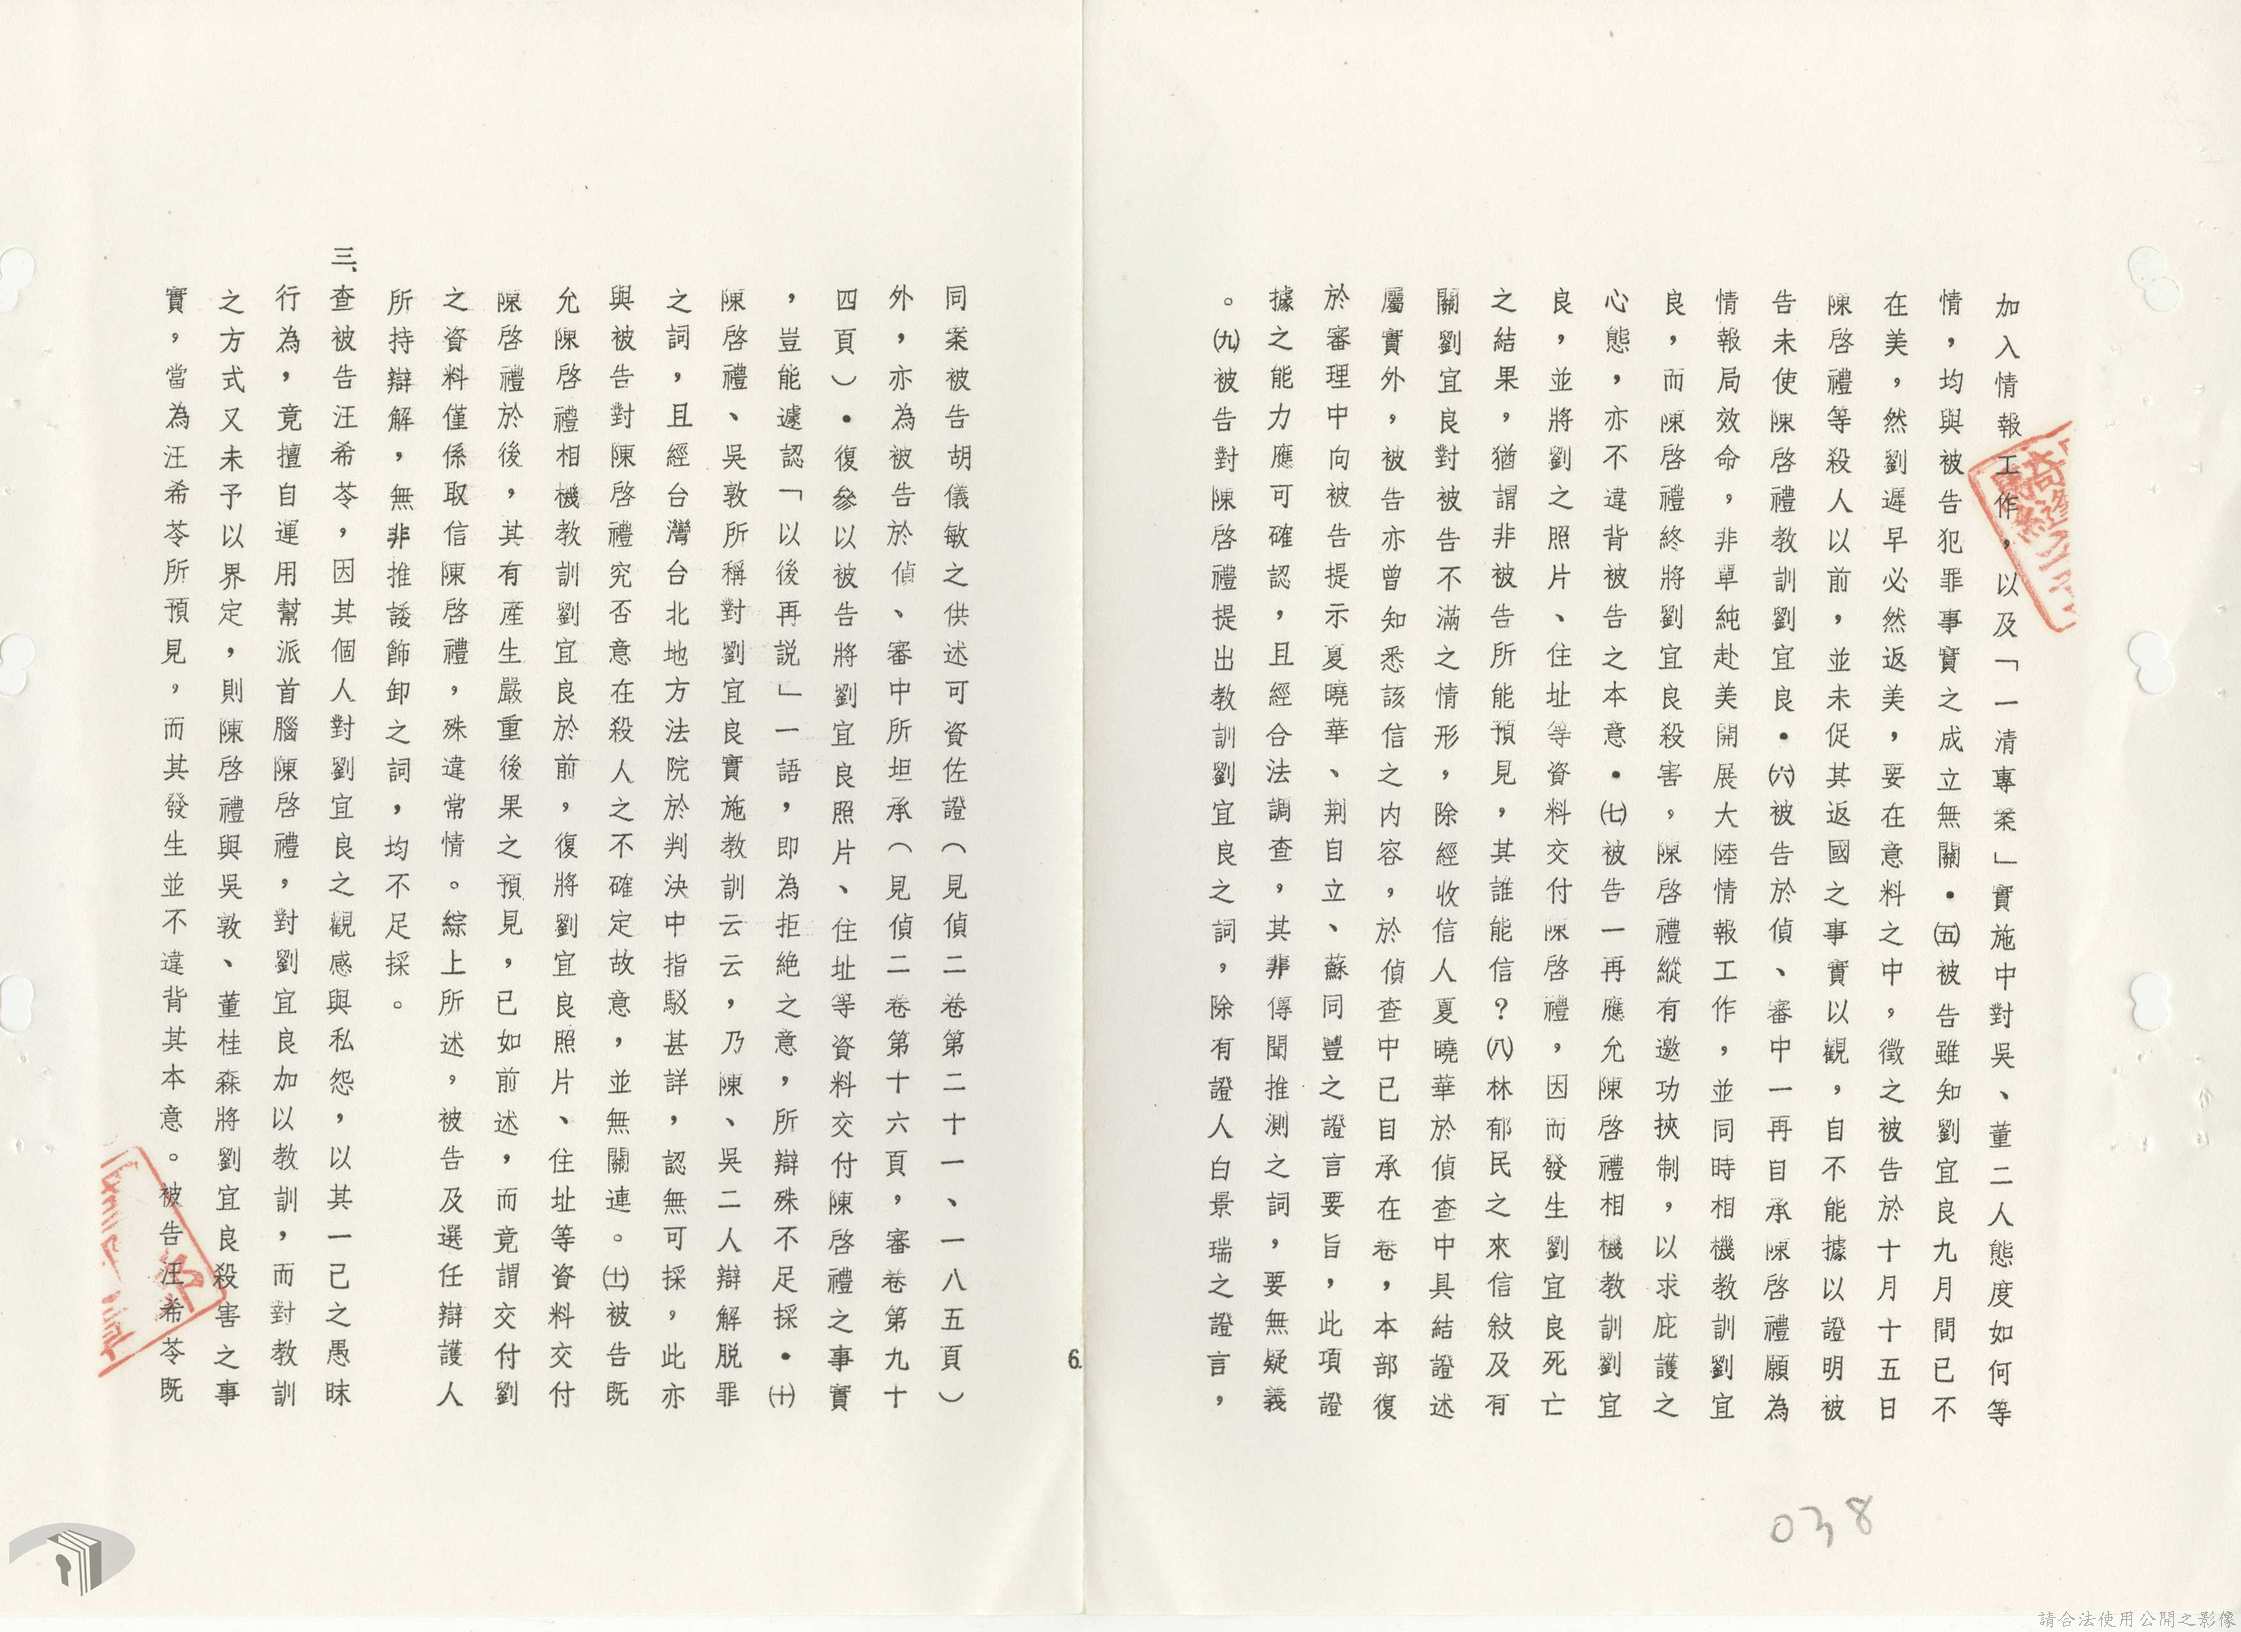 加入情報工作，以及「一清專案」實施中對吳、董二人態度如何等
情，均與被告犯罪事實之成立無關．㈤被告雖知劉宜良九月間已不
在美，然劉遲早必然返美，要在意料之中，徵之被告於十月十五日
陳啓禮等殺人以前，並未促其返國之事實以觀，自不能據以證明被
告未使陳啓禮教訓劉宜良．㈥被告於偵、審中一再自承陳啓禮願為
情報局效命，非單純赴美開展大陸情報工作，並同時相機教訓劉宜
良，而陳啓禮終將劉宜良殺害，陳啓禮縱有邀功挾制，以求庇護之
心態，亦不違背被告之本意．㈦被告一再應允陳啓禮相機教訓劉宜
良，並將劉之照片、住址等資料交付陳啓禮，因而發生劉宜良死亡
之結果，猶謂非被告所能預見，其誰能信？㈧林郁民之來信敍及有
關劉宜良對被告不滿之情形，除經收信人夏曉華於偵查中具結證述
屬實外，被告亦曾知悉該信之內容，於偵查中已自承在卷，本部復
於審理中向被告提示夏曉華、荆自立、蘇同豐之證言要旨，此項證
據之能力應可確認，且經合法調查，其非傳聞推測之詞，要無疑義
。㈨被告對陳啓禮提出教訓劉宜良之詞，除有證人白景瑞之證言，
同案被告胡儀敏之供述可資佐證（見偵二卷第二十一、一八五頁）
外，亦為被告於偵、審中所坦承（見偵二卷第十六頁，審卷第九十
四頁）．復參以被告將劉宜良照片、住址等資料交付陳啓禮之事實
，豈能遽認「以後再説」一語，即為拒絕之意，所辯殊不足採．㈩
陳啓禮、吳敦所稱對劉宜良實施教訓云云，乃陳、吳二人辯解脱罪
之詞，且經台灣台北地方法院於判決中指駁甚詳，認無可採，此亦
與被告對陳啓禮究否意在殺人之不確定故意，並無關連。㈩被告既
允陳啓禮相機教訓劉宜良於前，復將劉宜良照片、住址等資料交付
陳啓禮於後，其有產生嚴重後果之預見，已如前述，而竟謂交付劉
之資料僅係取信陳啓禮，殊違常情。綜上所述，被告及選任辯護人
所持辯解，無非推諉飾卸之詞，均不足採。
三、查被告汪希苓，因其個人對劉宜良之觀感與私怨，以其一己之愚昧
行為，竟擅自運用幫派首腦陳啓禮，對劉宜良加以教訓，而對教訓
之方式又未予以界定，則陳啓禮與吳敦、董桂森將劉宜良殺害之事
實，當為汪希苓所預見，而其發生並不違背其本意。被告汪希苓既
6.
038
請合法使用公開之影像